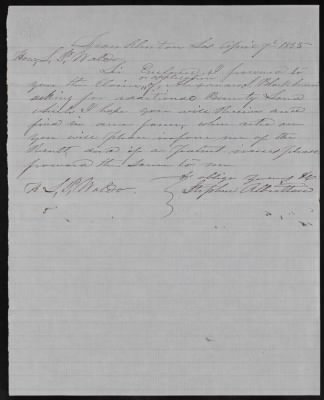 Ga April 9th 1855
Hon L. P. Waldo
Sir Enclosed I forward to
you the claim or application of Blackburn
asking for additional Bounty Land
which I hope you will receive and
find in due form, when acted on
you will please inform me of the
result, and if a patent issues please
forward the same to me
& oblige yours &c
L. P. Waldo. Stephen